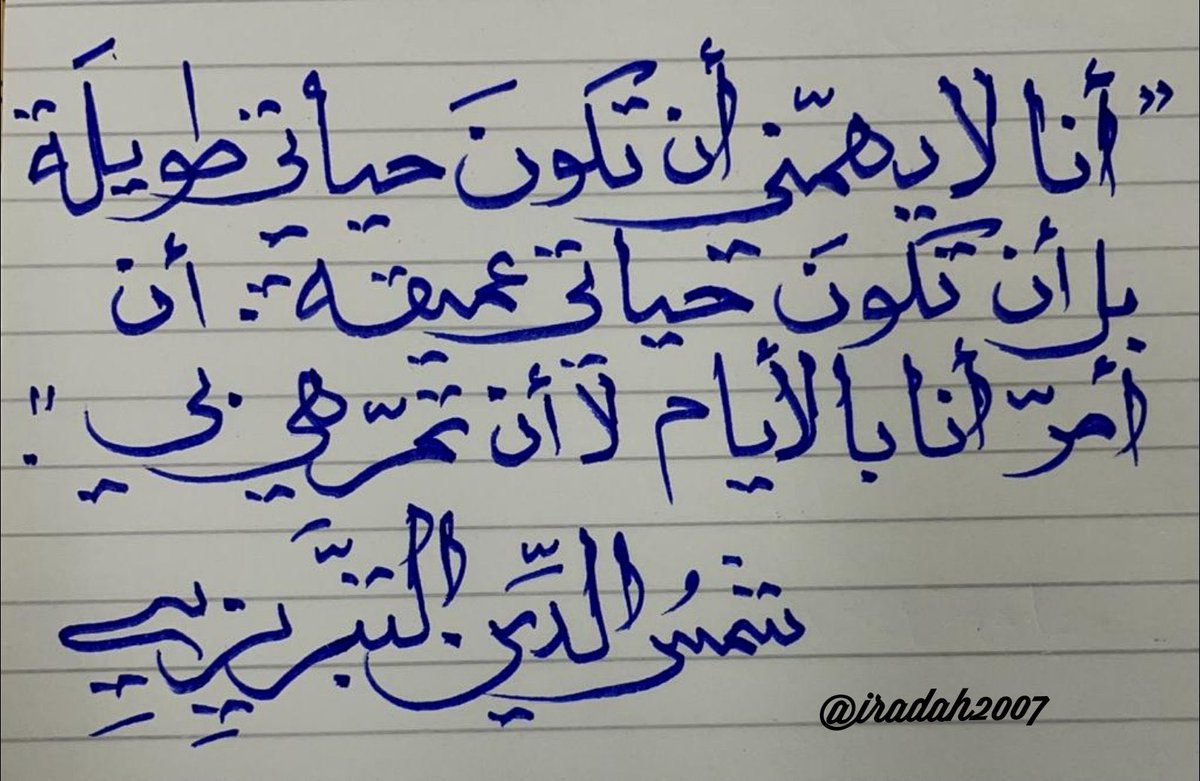 "أنا لا يهمّني أن تكونَ حياتي طويلَة
بل أن تكونَ حياتي عميقة : أن
أمرّ أنا بالأيام لا أن تمرّ هي بي".
شمسُ الدِّين التبَّريزِيِ
@iradah2007